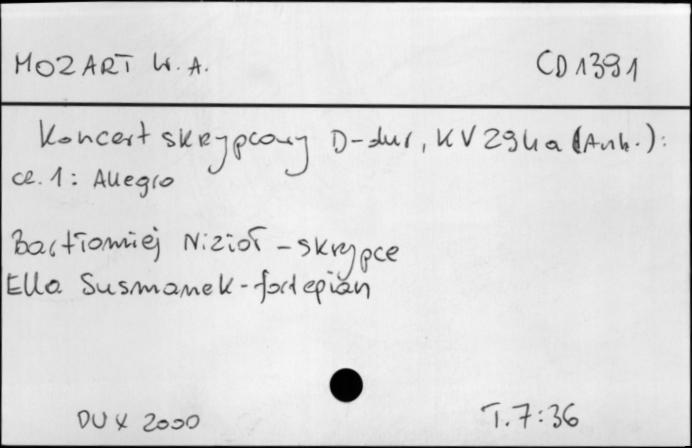 MOZART W. A.
CD 1391
Koncert skrzypcowy D-dur, KV 294a (Anh.):
cz. 1: Allegro
Bartłomiej Nizioł - skrzypce
Ella Susmanek - fortepian
DUX 2000
T. 7:36